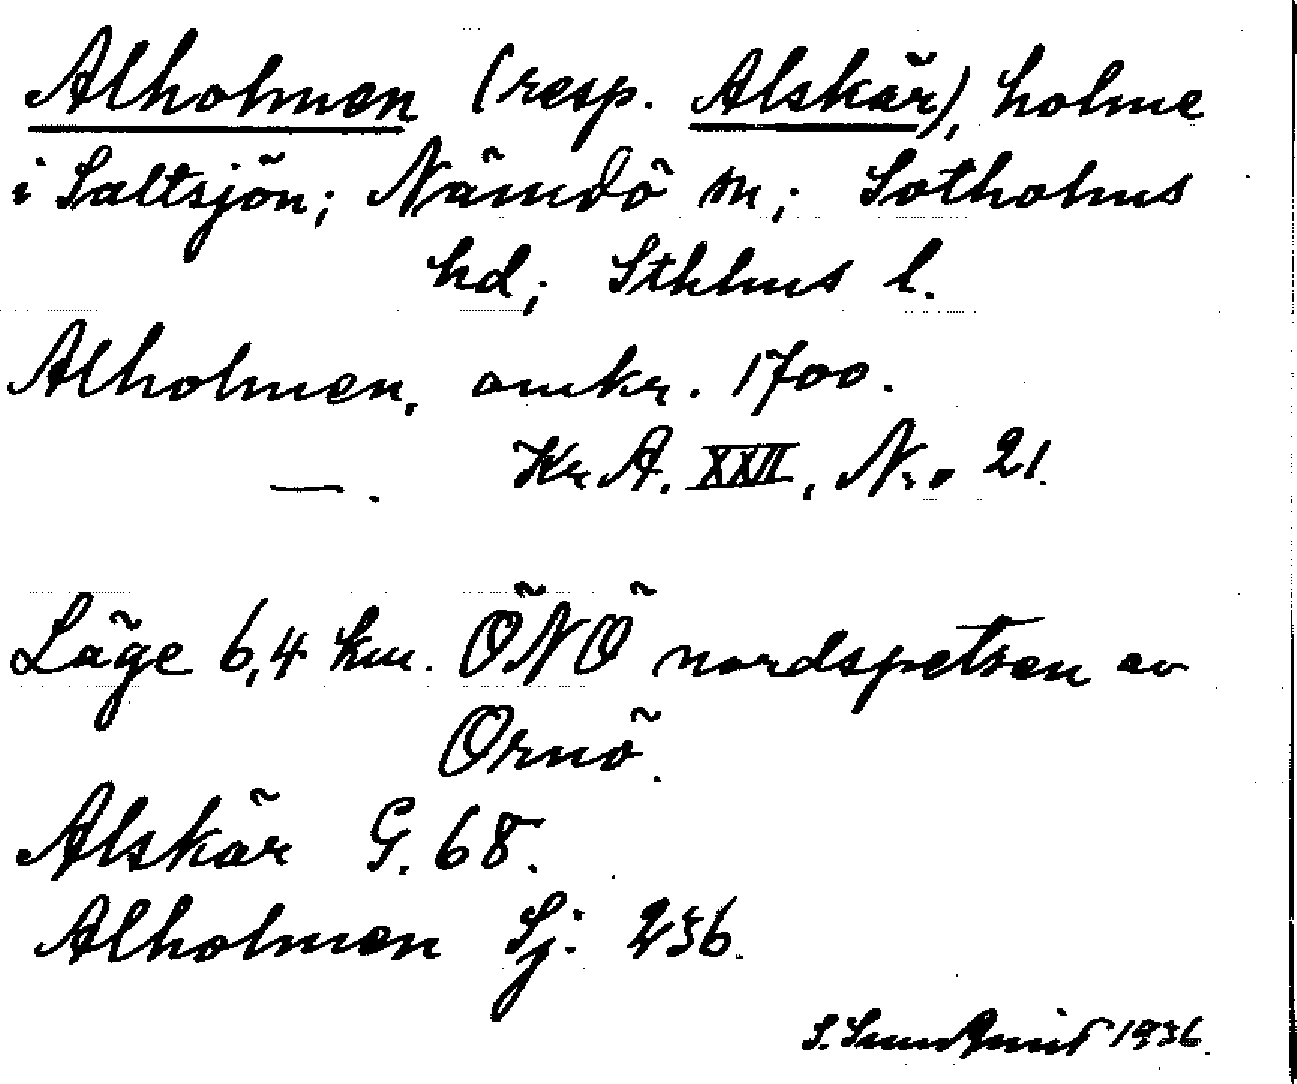 Alholmen (resp. Alskär), holme
i Saltsjön; Nämdö sn; Sotholms
hd; Sthlms l.
Alholmen, omkr. 1700.
—. Kr. A. XXII, N:o 21.
Läge 6,4 km. ÖNÖ nordspetsen av
Ornö.
Alskär G. 68.
Alholmen Sj: 236.
S. 1936.